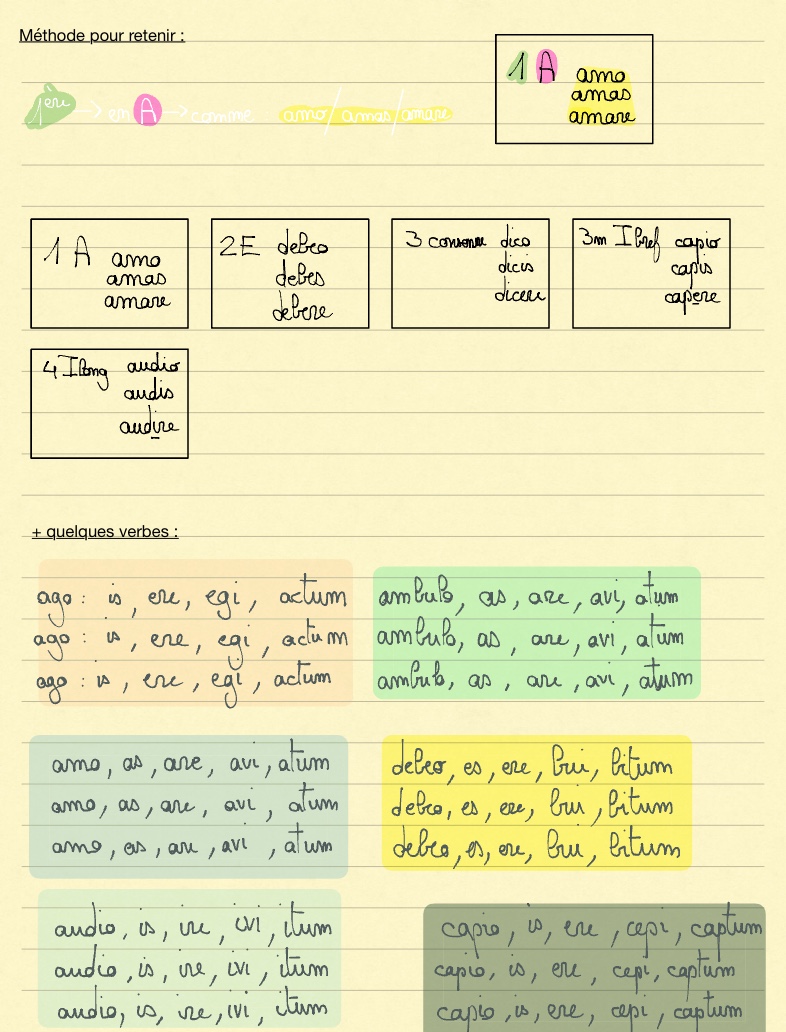 Méthode pour retenir :
1ère -> en A -> comme : amo/ amas/ amare
1 A amo
amas
amare
1 A amo
amas
amare
2E debeo
debes
debere
3 consonne dico
dicis
dicere
3m I bref capio
capis
capere
4 I long audio
audis
audire
+ quelques verbes :
ago : is, ere, egi, actum
ago : is, ere, egi, actum
ago : is, ere, egi, actum
ambulo, as, are, avi, atum
ambulo, as, are, avi, atum
ambulo, as, are, avi, atum
amo, as, are, avi, atum
amo, as, are, avi, atum
amo, as, are, avi, atum
debeo, es, ere, bui, bitum
debeo, es, ere, bui, bitum
debeo, es, ere, bui, bitum
audio, is, ire, ivi, itum
audio, is, ire, ivi, itum
audio, is, ire, ivi, itum
capio, is, ere, cepi, captum
capio, is, ere, cepi, captum
capio, is, ere, cepi, captum